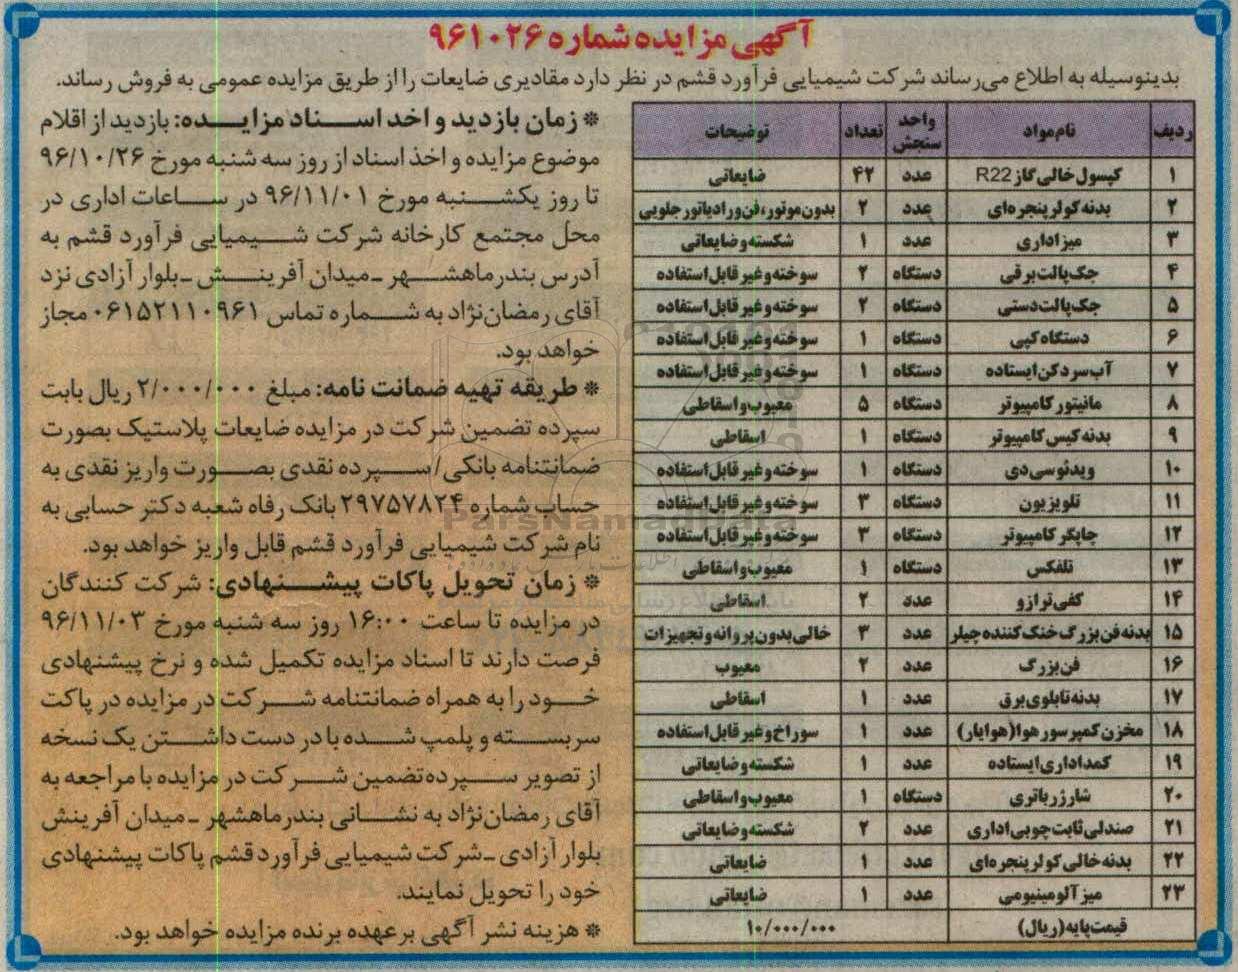 آگهی مزایده شماره ۹۶۱۰۲۶
بدینوسیله به اطلاع می‌رساند شرکت شیمیایی فرآورد قشم در نظر دارد مقادیری ضایعات را از طریق مزایده عمومی به فروش رساند.
ردیف نام مواد واحد سنجش تعداد توضیحات
۱ کپسول خالی گاز R22 عدد ۴۲ ضایعاتی
۲ بدنه کولر پنجره‌ای عدد ۲ بدون موتور، فن و رادیاتور جلویی
۳ میز اداری عدد ۱ شکسته و ضایعاتی
۴ جک پالت برقی دستگاه ۲ سوخته و غیر قابل استفاده
۵ جک پالت دستی دستگاه ۲ سوخته و غیر قابل استفاده
۶ دستگاه کپی دستگاه ۱ سوخته و غیر قابل استفاده
۷ آب سردکن ایستاده دستگاه ۱ سوخته و غیر قابل استفاده
۸ مانیتور کامپیوتر دستگاه ۵ معیوب و اسقاطی
۹ بدنه کیس کامپیوتر دستگاه ۱ اسقاطی
۱۰ ویدئو سی دی دستگاه ۱ سوخته و غیر قابل استفاده
۱۱ تلویزیون دستگاه ۳ سوخته و غیر قابل استفاده
۱۲ چاپگر کامپیوتر دستگاه ۳ سوخته و غیر قابل استفاده
۱۳ تلفکس دستگاه ۱ معیوب و اسقاطی
۱۴ کفی ترازو عدد ۲ اسقاطی
۱۵ بدنه فن بزرگ خنک کننده چیلر عدد ۳ خالی بدون پروانه و تجهیزات
۱۶ فن بزرگ عدد ۲ معیوب
۱۷ بدنه تابلوی برق عدد ۱ اسقاطی
۱۸ مخزن کمپرسور هوا (هوایار) عدد ۱ سوراخ و غیر قابل استفاده
۱۹ کمد اداری ایستاده عدد ۱ شکسته و ضایعاتی
۲۰ شارژر باتری دستگاه ۱ معیوب و اسقاطی
۲۱ صندلی ثابت چوبی اداری عدد ۲ شکسته و ضایعاتی
۲۲ بدنه خالی کولر پنجره‌ای عدد ۱ ضایعاتی
۲۳ میز آلومینیومی عدد ۱ ضایعاتی
قیمت پایه (ریال) ۱۰/۰۰۰/۰۰۰
* زمان بازدید و اخد اسناد مزایده: بازدید از اقلام
موضوع مزایده و اخذ اسناد از روز سه شنبه مورخ ۹۶/۱۰/۲۶
تا روز یکشنبه مورخ ۹۶/۱۱/۰۱ در ساعات اداری در
محل مجتمع کارخانه شرکت شیمیایی فرآورد قشم به
آدرس بندرماهشهر ـ میدان آفرینش ـ بلوار آزادی نزد
آقای رمضان‌نژاد به شماره تماس ۰۶۱۵۲۱۱۰۹۶۱ مجاز
خواهد بود.
* طریقه تهیه ضمانت نامه: مبلغ ۲/۰۰۰/۰۰۰ ریال بابت
سپرده تضمین شرکت در مزایده ضایعات پلاستیک بصورت
ضمانتنامه بانکی/سپرده نقدی بصورت واریز نقدی به
حساب شماره ۲۹۷۵۷۸۲۴ بانک رفاه شعبه دکتر حسابی به
نام شرکت شیمیایی فرآورد قشم قابل واریز خواهد بود.
* زمان تحویل پاکات پیشنهادی: شرکت کنندگان
در مزایده تا ساعت ۱۶:۰۰ روز سه شنبه مورخ ۹۶/۱۱/۰۳
فرصت دارند تا اسناد مزایده تکمیل شده و نرخ پیشنهادی
خود را به همراه ضمانتنامه شرکت در مزایده در پاکت
سربسته و پلمپ شده با در دست داشتن یک نسخه
از تصویر سپرده تضمین شرکت در مزایده با مراجعه به
آقای رمضان‌نژاد به نشانی بندرماهشهر ـ میدان آفرینش
بلوار آزادی ـ شرکت شیمیایی فرآورد قشم پاکات پیشنهادی
خود را تحویل نمایند.
* هزینه نشر آگهی بر عهده برنده مزایده خواهد بود.
ParsNamadData